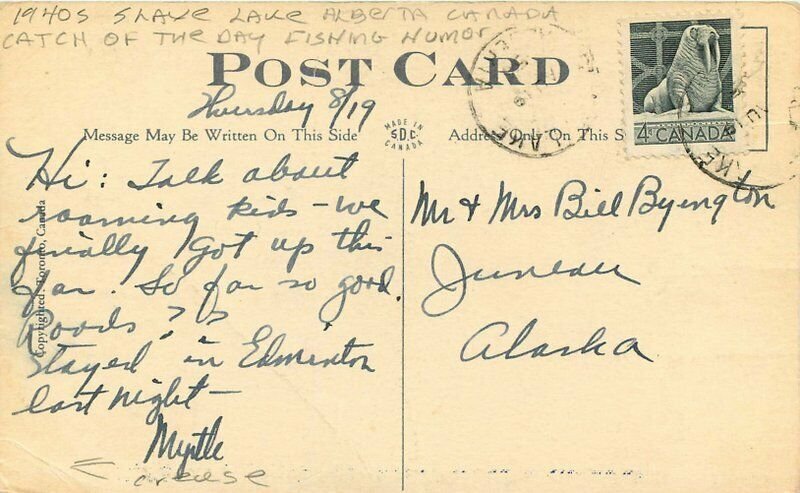 1940s SLAVE LAKE ALBERTA CANADA
CATCH OF THE DAY FISHING HUMOR
POST CARD
Thursday 8/19
Message May Be Written On This Side
MADE IN
S.D.C.
CANADA
Address Only On This
4¢ CANADA
LAKE
Hi: Talk about
roaming kids - we
finally got up this
far. So far so good.
Roads ? ?
Stayed in Edminton
last night -
Myrtle
Mr & Mrs Bill Byington
Juneau
Alaska
Copyrighted, Toronto, Canada
crease